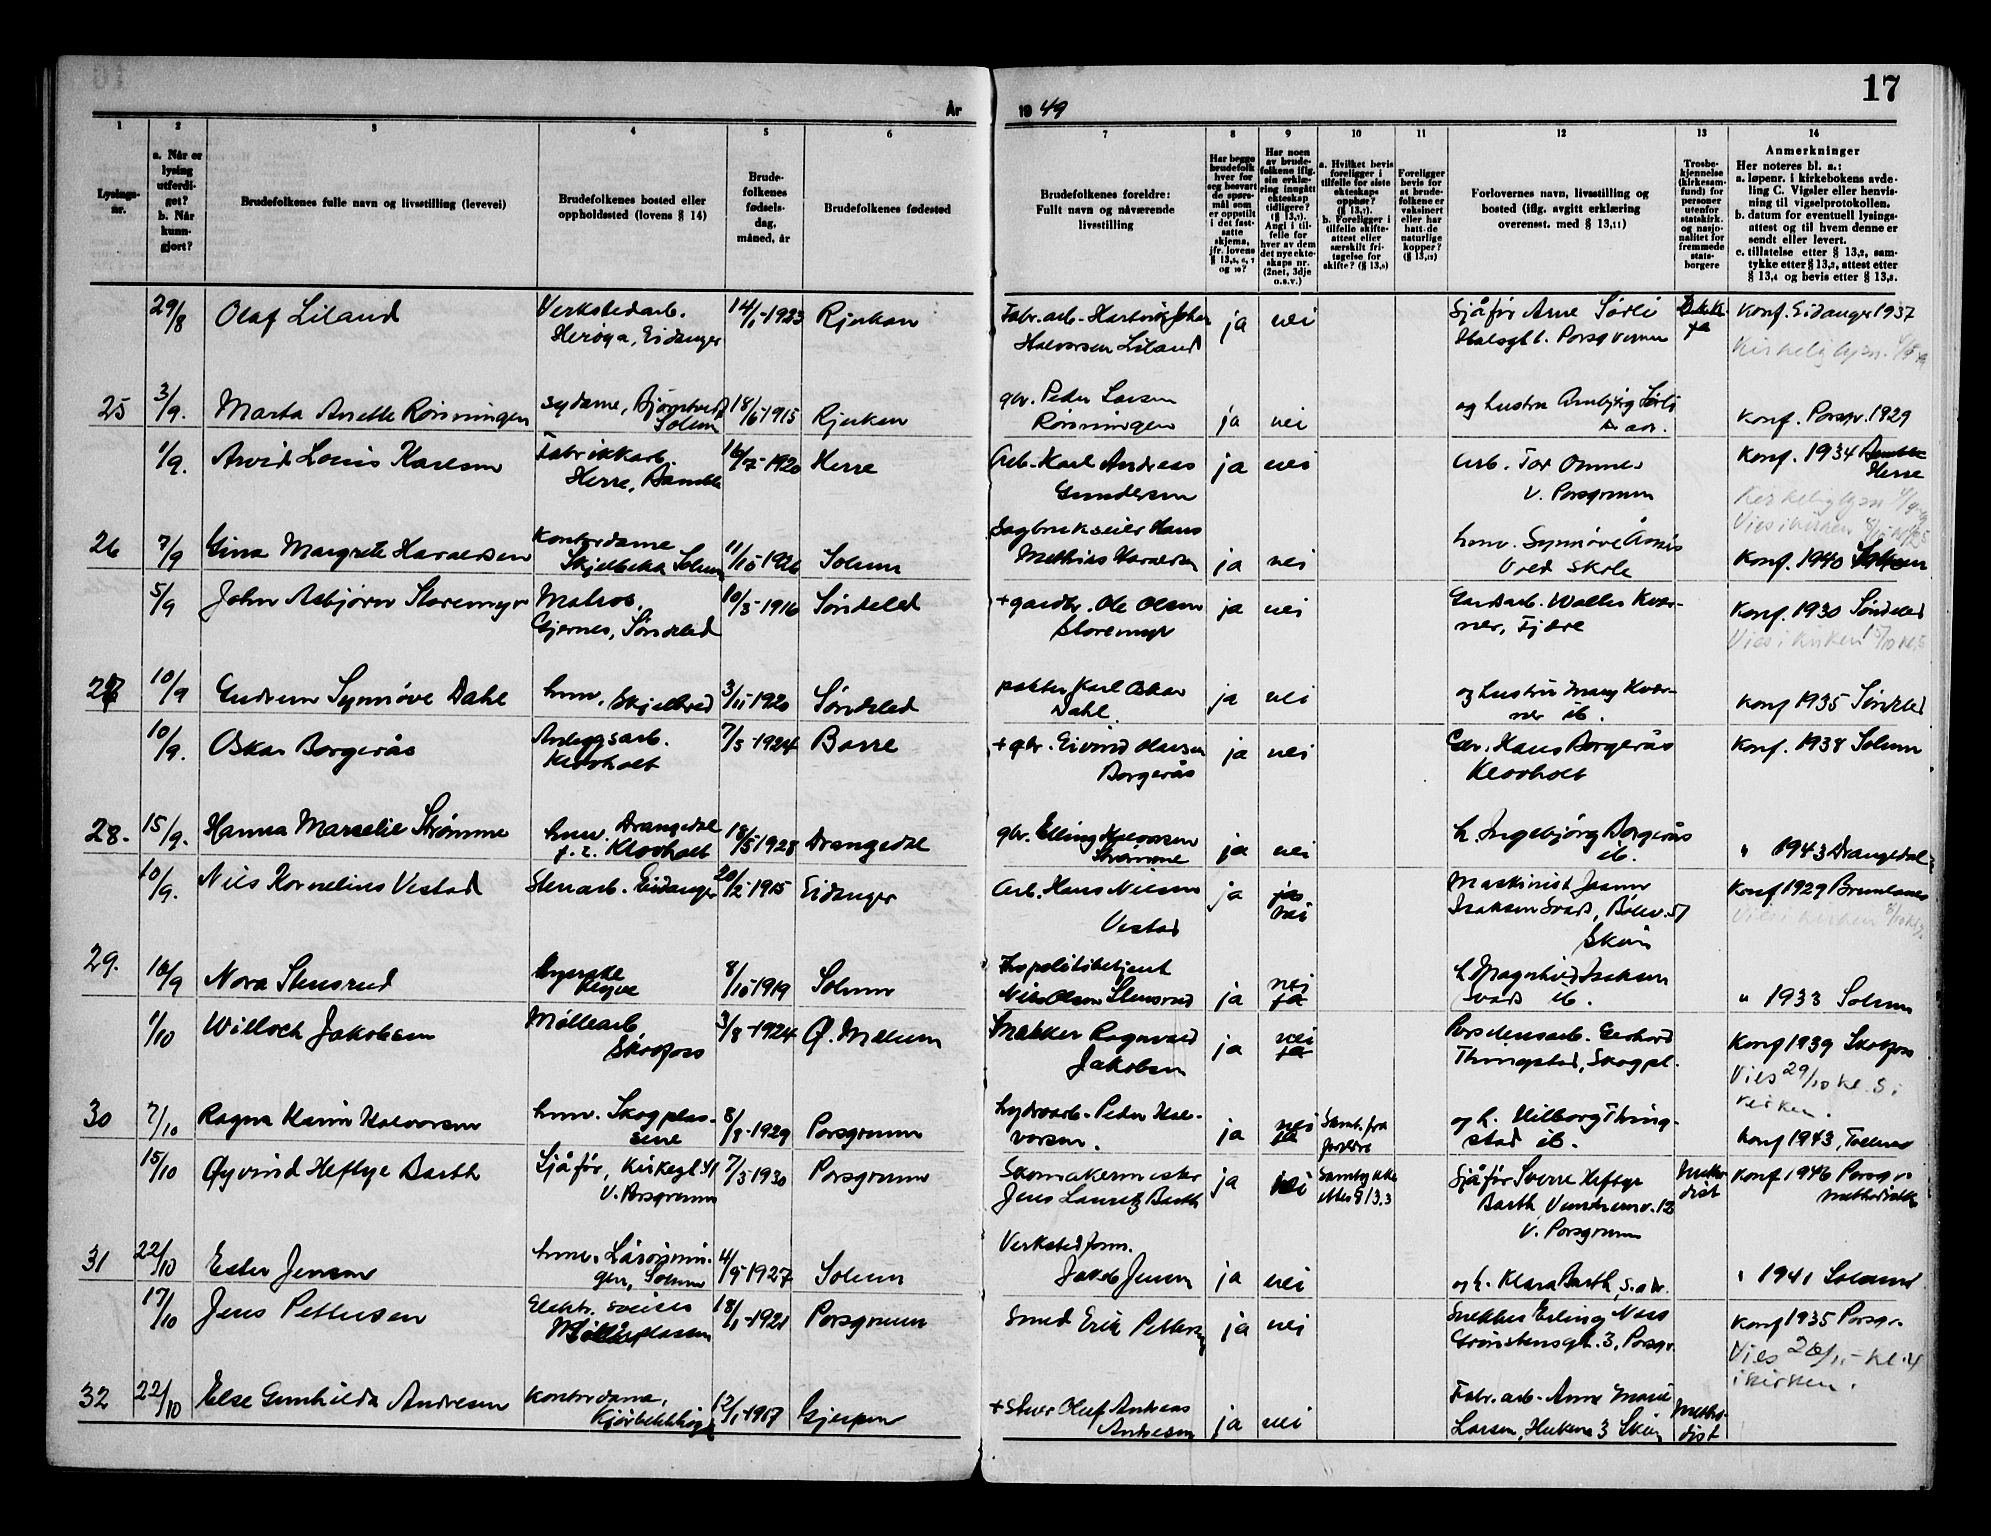 17
År
19 49
1
2
3
4
5
6
7
8
9
10
11
12
13
14
Lysings-
nr.
a. Når er
lysing
utferdi-
get?
b. Når
kunn-
gjort?
Brudefolkenes fulle navn og livsstilling (levevei)
Brudefolkenes bosted eller
oppholdssted (lovens § 14)
Brude-
folkenes
fødsels-
dag,
måned, år
Brudefolkenes fødested
Brudefolkenes foreldre:
Fullt navn og nåværende
livsstilling
Har begge
brudefolk
hver for
seg besvart
de spørs-
mål som
er oppstilt
i det fast-
satte
skjema,
jfr. lovens
§ 13,5, 6, 7
og 10?
Har noen
av brude-
folkene iflg.
sin erklæ-
ring inngått
ekteskap
tidligere?
(§ 13,7).
Angi i til-
felle for
hver av dem
det nye ekte-
skaps nr.
(2net, 3dje
o.s.v.)
a. Hvilket bevis
foreligger i
tilfelle for siste
ekteskaps
opphør?
(§ 13,7).
b. Foreligger i
tilfelle skifte-
attest eller
særskilt fri-
tagelse for
skifte? (§ 13,8)
Foreligger
bevis for
at brude-
folkene er
vaksinert
eller har
hatt de
naturlige
kopper?
(§ 13,12)
Forlovernes navn, livsstilling og
bosted (iflg. avgitt erklæring
overenst. med § 13,11)
Trosbe-
kjennelse
(kirkesam-
fund) for
personer
utenfor
statskirk.
og nasjo-
nalitet for
fremmede
stats-
borgere
Anmerkninger
Her noteres bl. a.:
a. løpenr. i kirkebokens avde-
ling C. Vigsler eller henvis-
ning til vigselprotokollen.
b. datum for eventuell lysings-
attest og til hvem denne er
sendt eller levert.
c. tillatelse etter § 13,2, sam-
tykke etter § 13,3, attest etter
§ 13,4 og bevis etter § 13,8.
29/8 Olaf Liland Verkstedarb. Herøya, Eidanger 14/1-1923 Rjukan Fabr.arb. Hartvig Johan Halvorsen Liland ja nei Sjåfør Arne Sørli Halsgt 1. Porsgrunn Konf. Eidanger 1937
25 3/9. Marta Anette Rønningen sydame, Bjørntvedt Solum 18/6-1915 Rjukan gbr. Peder Larsen Rønningen ja nei og hustru Arnbjørg Sørli s. adr. Konf. Porsgr. 1929
1/9. Arvid Louis Karlsen Fabrikkarb. Herre, Bamble 16/7-1920 Herre Arb. Karl Andreas Gundersen ja nei Arb. Tor Omnes V. Porsgrunn Konf. 1934 Herre
26 7/9 Gina Margrete Haraldsen Kontordame Skjelbekk Solum 11/10-1926 Solum Sagbrukseier Hans Mathias Haraldsen ja nei husm. Synnøve Vold skole Konf. 1940 Solum
5/9 John Asbjørn Staremyr Matros, Gjernes, Søndeled 10/3-1916 Søndeled + gardbr. Ole Olsen Staremyr ja nei Gardarb. Walter Kvær-
ner, Fjære Konf. 1930 Søndeled
Vies i kirken 15/10 kl. 5
27 10/9 Gudrun Synnøve Dahl husm. Skjelbred 3/11-1920 Søndeled pakter Karl Oskar Dahl. ja nei og hustru Mary Kvær-
ner ib. Konf 1935 Søndeled
10/9. Oskar Borgerås Anleggsarb. Klovholt 7/3-1924 Borre + gbr. Eivind Olausen Borgerås ja nei Gbr. Hans Borgerås Klovholt Konf. 1938 Solum
28. 15/9. Hanna Marselie Strømme husm. Drangedal f.t. Klovholt 18/5-1928 Drangedal gbr. Elling Halvorsen Strømme ja nei h. Ingebjørg Borgerås ib. " 1943 Drangedal
10/9. Nils Kornelius Vestad Stenarb. Eidanger 20/2-1915 Eidanger Arb. Hans Nilsen Vestad ja ja nei Maskinist Joanor Isaksen Svads, Bølev. 51 Skien Konf 1929 Brunlanes
29. 16/9 Nora Stensrud Syerske Klyve 8/10-1919 Solum Fhv politibetjent Nils Olsen Stensrud ja nei ja h. Magnhild Isaksen Svads ib. " 1933 Solum
1/10 Willoch Jakobsen Møllearb. Skotfoss 3/8-1924 Ø. Melum Snekker Ragnvald Jakobsen ja nei ja Porselensarb. Gerhard Thringstad, Skogpl. Konf 1939 Skotfoss
Vies 29/10 kl. 5 i kirken.
30 7/10 Ragna Karin Halvorsen husm. Skogplas-
sene 8/8-1929 Porsgrunn hydroarb. Peder Hal-
vorsen. ja nei ja Samt. fra foreldre og h. Hilborg Thring-
stad ib. Konf 1943,
15/10 Øyvind Heftye Barth Sjåfør, Kirkegt 41 V. Porsgrunn 7/3-1930 Porsgrunn Skomakermester Jens Lauritz Barth ja nei Samtykke etter § 13.3 Sjåfør Sverre Heftye Barth, Vundremv. 12 V. Porsgrunn Metho-
dist Konf 1946 Porsgr. methodistk
31 22/10 Ester Jensen husm. Lårønnin-
gen, Solum 4/9-1927 Solum Verkstedform. Jakob Jensen ja nei og h. Klara Barth, s. adr. " 1941 Solum
17/10 Jens Pettersen Elektr. sveiser Mølleplassen 18/1-1921 Porsgrunn Smed Erik Pettersen ja nei Snekker Erling Næss Grønstensgt. 3, Porsgr. Konf 1935 Porsgr.
Vies 26/11- kl. 4 i kirken.
32 22/10 Else Gunhilda Andresen Kontordame, Kjørbekkhøgda 12/1-1917 Gjerpen + Stuer Oluf Andreas Andresen ja nei Fabr. arb. Anne Marie Larsen, Heikene 3 Skien Metho-
dist